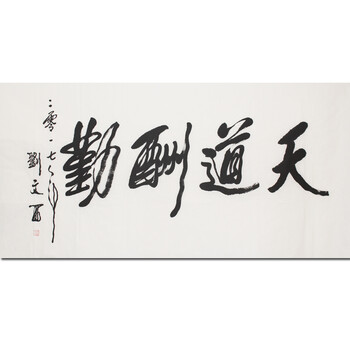 天道酬勤
二零一七
劉文西